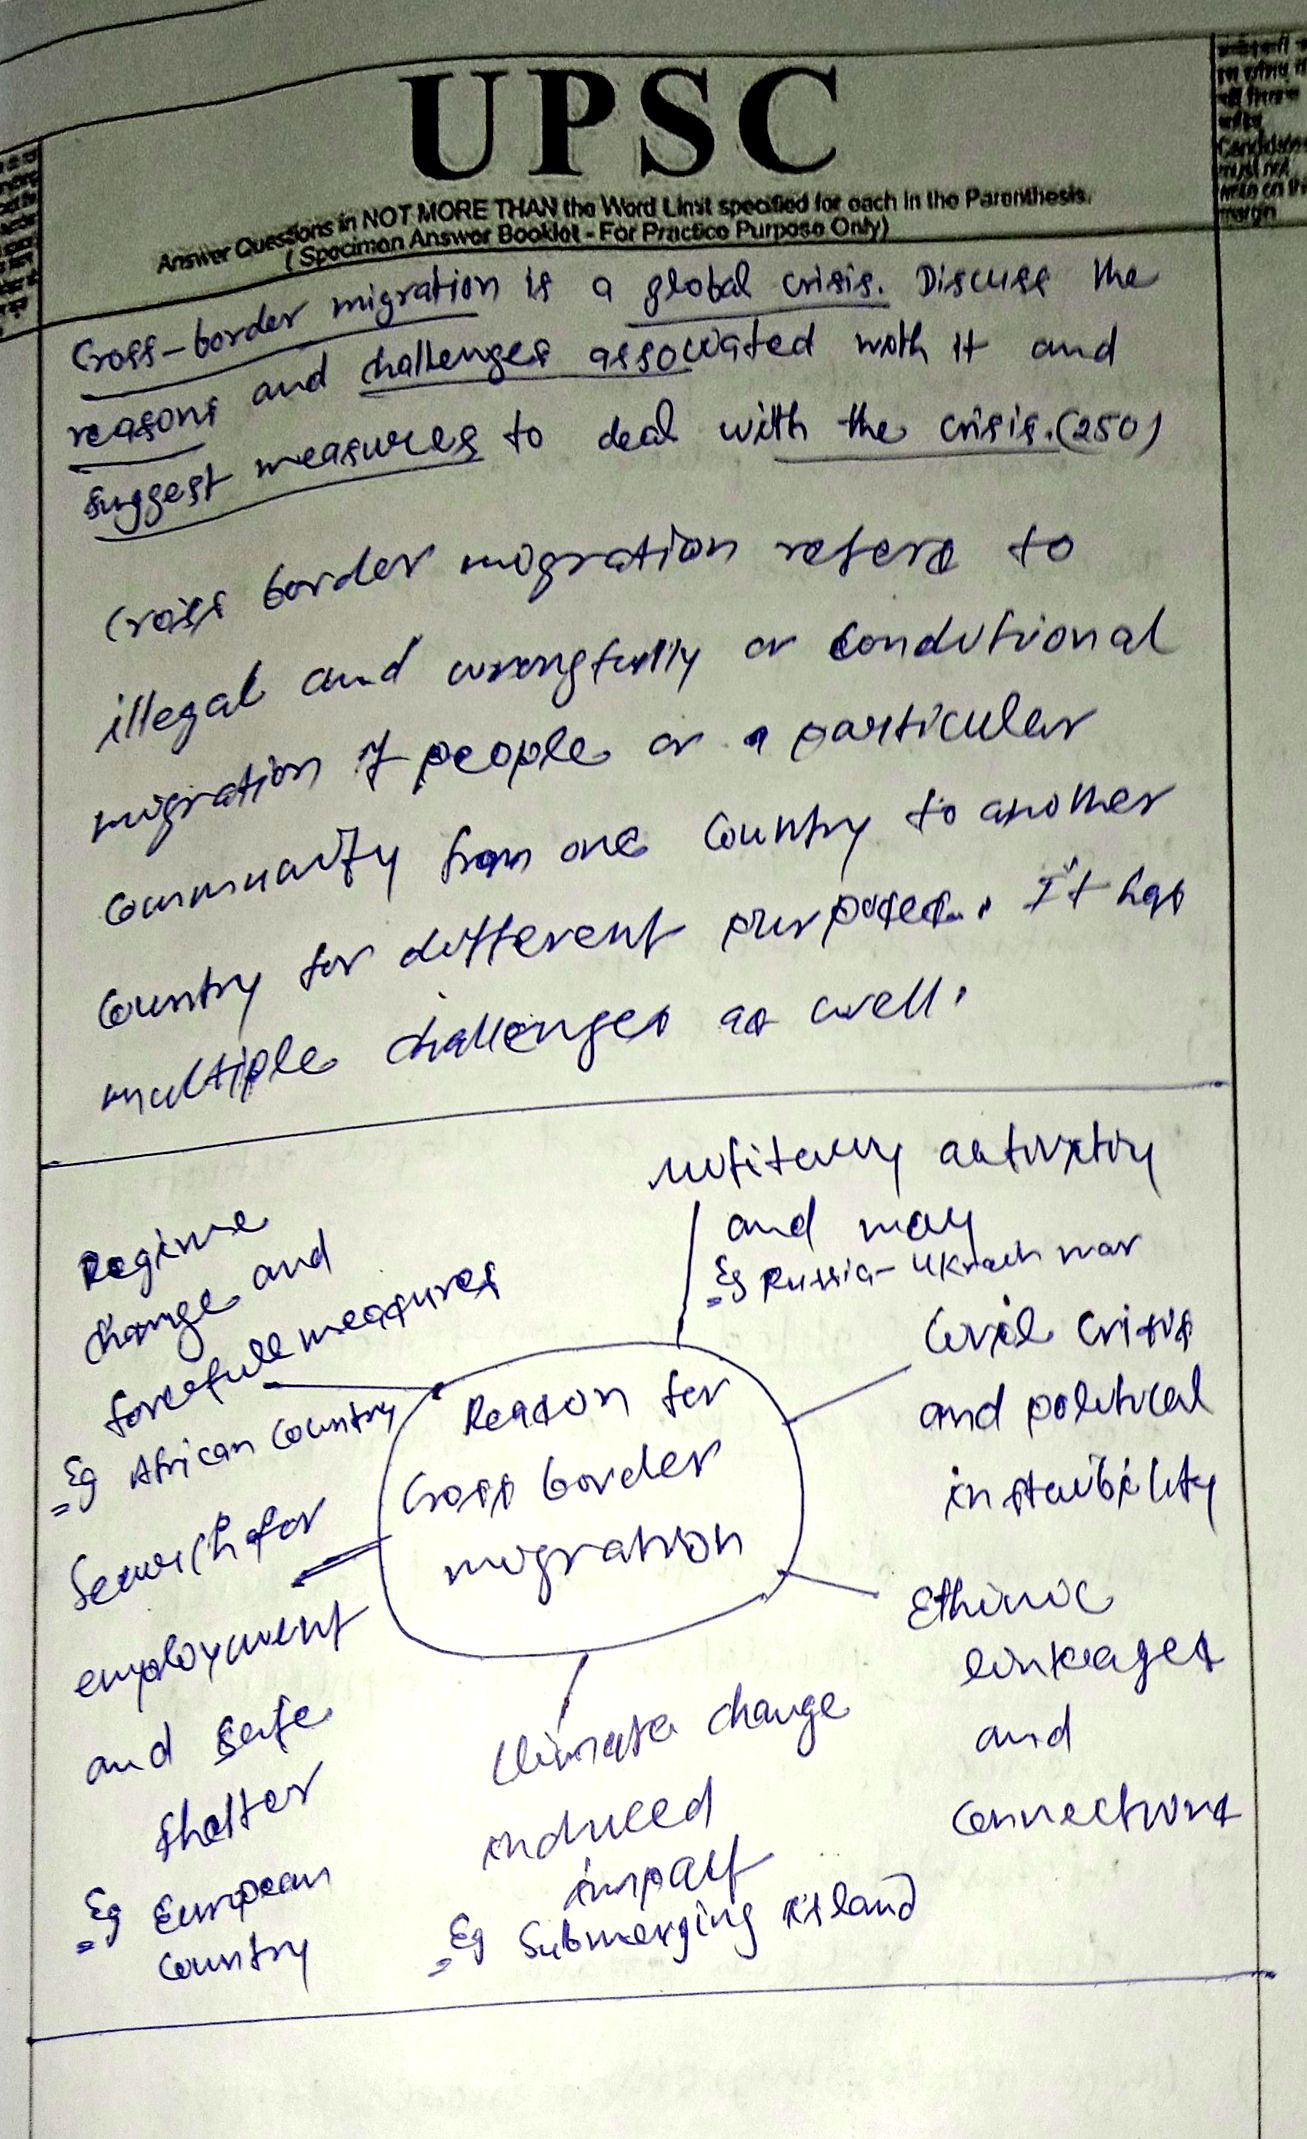 UPSC
Answer Questions in NOT MORE THAN the Word Limit specified for each in the Parenthesis.
(Specimen Answer Booklet - For Practice Purpose Only)
Candidates
must not
write on the
margin
Cross-border migration is a global crisis. Discuss the
reasons and challenges associated with it and
suggest measures to deal with the crisis. (250)
Cross border migration refers to
illegal and wrongfully or conditional
migration of people or a particular
community from one country to another
country for different purposes. It has
multiple challenges as well.
Regime
change and
forcefull measures
Eg African country
Search for
employment
and safe
shelter
Eg European
country
Reason for
Cross border
migration
and may
Eg Russia-Ukrain war
Civil crisis
and political
instability
Ethinic
linkages
and
connections
Climate change
induced
impact
Eg Submerging island